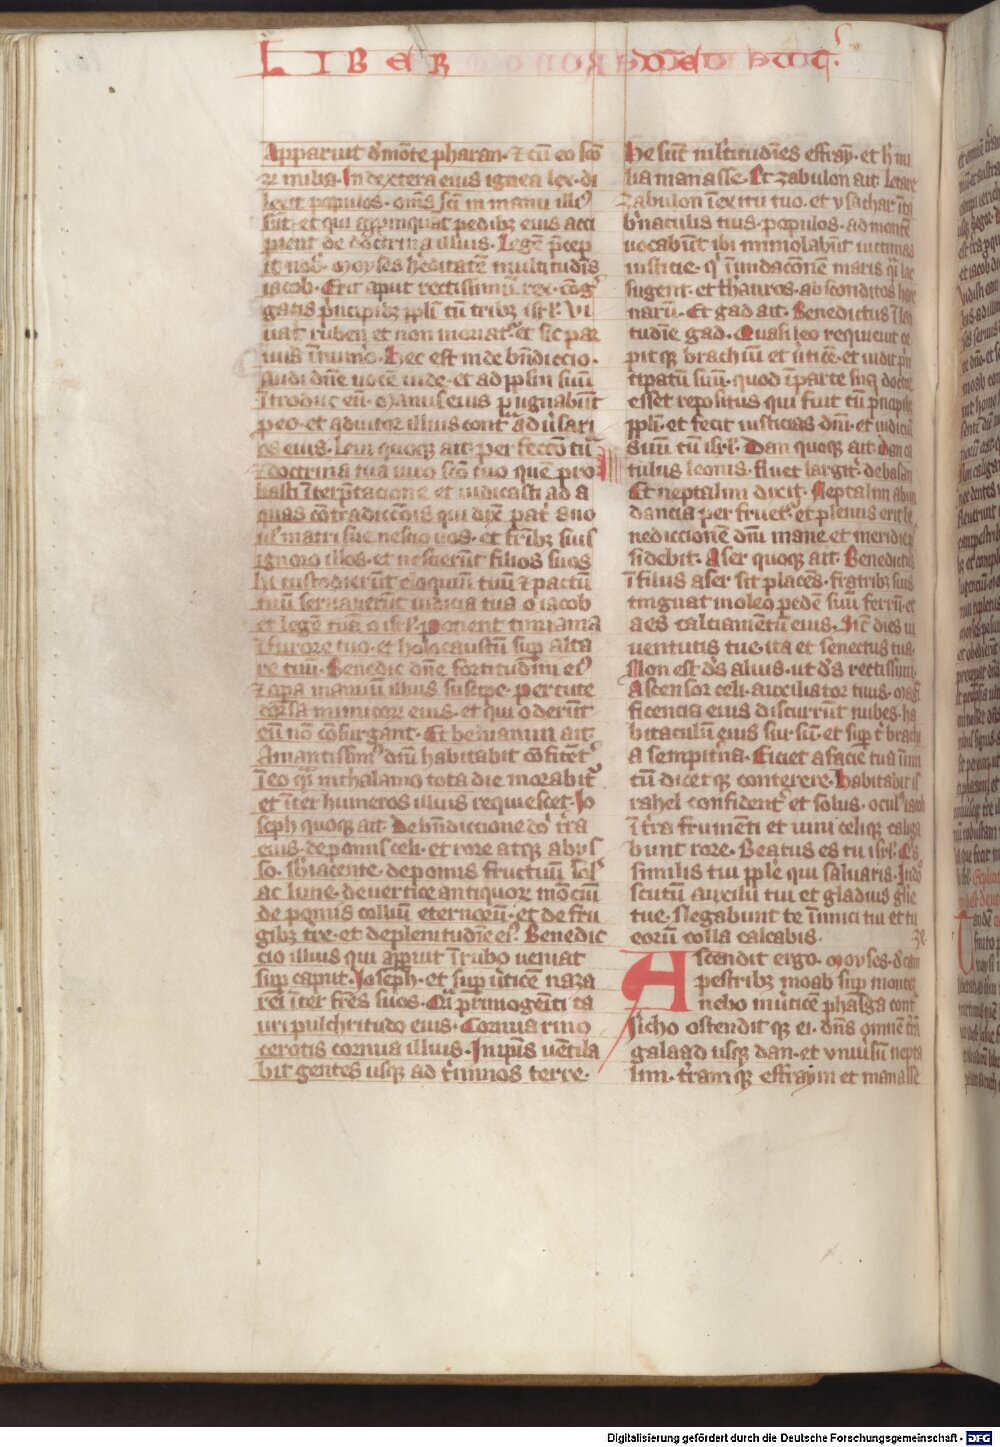 LIBER
Apparuit d̄ mōte pharan· ⁊ cū eo scō
ꝝ milia· In dextera eius ignea lex· di
lexit populos· om̄s sc̄i in manu illiꝰ
sūt· et qui appinquāt pedibꝫ eius acci
pient de doctrina illius· Legē p̄cep
it nob̄· Moyses h̓editatē multitudīs
iacob· Erit aput rectissimū rex· cōg̓
gatis p̓ncipibꝫ ppl̓i cū tribꝫ isrl̓· Vi
uat ruben et non moriat̓· et sit par
uus ī numo· Hec est iude bn̄diccio·
Audi dn̄e uocē iude· et ad pplm̄ suū
ītroduc eū· Manus eius pugnabūt
p eo· et adiutor illius cont̓ adūsari
os eius· Leui quoqꝫ ait· perfeccō tua
⁊ doctrina tua uiro scō tuo quē pro
basti ī terp̄tacione et iudicasti ad a
quas cōtradiccōis qui dix̄ pat̓ suo
ul̓ matri sue nescio uos· et fr̄ibꝫ suis
ignoro illos· et nescierūt filios suos
hi custodierūt eloquiū tuū ⁊ pactū
tuū seruauerūt iudicia tua o iacob
et legē tuā o isrl̓· ponent timiama
ī furore tuo· et holocaustū sup alta
re tuū· Benedic dn̄e fortitudini eiꝰ
⁊ opa manuū illius suscipe· percute
dorsa inimicoꝝ eius· et qui oderūt
eū nō cōsurgant· Et beniamin ait·
Amantissimꝰ dn̄i habitabit cōfident̓
ī eo q̓si in thalamo tota die morabit̓
et īter humeros illius requiescet· Jo
seph quoqꝫ ait· De bn̄diccione dn̄i t̓ra
eius· de pomis celi· et rore atqꝫ abys
so· sb̓iacente· de pomis fructuū sol̓
ac lune· de uertice antiquoꝝ mōciū
de pomis colliū eternoꝝ· et de fru
gibꝫ t̓re· et de plenitudīe eiꝰ· Benedic
cio illius qui apparuit ī rubo ueniat
sup caput· Joseph· et sup ūticē naza
rei īter fr̄es suos· Qi̓ primogeīti ta
uri pulchritudo eius· Cornua rino
cerotis cornua illius· In ip̄is uētila
bit gentes usqꝫ ad t̓minos terre·
He sūt ml̓titudīes effraȳ· et h̓ mi
lia manasse· Et zabulon ait· letare
zabulon ī exitu tuo· et ysachar· ī ta
b̓naculis tuis· populos· ad montē
uocabūt ibi immolabūt uictimas
iusticie· q̓ īundacōnem maris q̓i lac
sugent· et thauros· absconditos hare
narū· Et gad ait· Benedictus ī la
tudīe gad· Quasi leo requieuit ce
pitqꝫ brachiū et ūticē· et uidit p̓n
cipatū suū· quod ī parte sua doctor
esset repositus qui fuit cū p̓ncipibꝫ
ppl̓i· et fecit iusticias dn̄i· et iudiciū
suū cū isrl̓· Dan quoqꝫ ait· dan ca
tulus leonis· fluet largit̓· de basan
Et neptalim dixit· Neptalim abun
dancia perfruet̓· et plenus erit be
nediccione dn̄i mare et meridiē
sidebit· Aser quoqꝫ ait· Benedictus
ī filius aser sit placēs· fratribꝫ suis
tinguat in oleo pedē suū· ferrū et
aes calciamētū eius· Sic̄ dies iu
uentutis tue· ita et senectus tua·
Non est ds̄ alius· ut ds̄ rectissimi·
Ascensor celi· auxiliator tuus· mag̓
ficencia eius discurrūt nubes· ha
bitaculū eius sursū· et supt̓ brachi
a sempit̓na· Eiciet a facie tua inimi
cū dicetqꝫ conterere· Habitabit is
rahel confident̓ et solus· oculꝰ iacob
ī t̓ra frumēti et uini celiqꝫ caliga
bunt rore· Beatus es tu isrl̓· Qis̄
similis tui pple qui saluaris· In dn̄o
scutū auxilii tui et gladius gl̓ie
tue· Negabunt te īimici tui et tu
eorū colla calcabis·
Ascendit ergo· Moyses· d̓ cam
pestribꝫ moab sup montē
nebo in uticē phasga cont̓
iericho ostenditqꝫ ei· dn̄s omnē t̓rā
galaad usqꝫ dan· et vniūsū nepta
lim· t̓ramqꝫ effraym et manasse
Digitalisierung gefördert durch die Deutsche Forschungsgemeinschaft - DFG